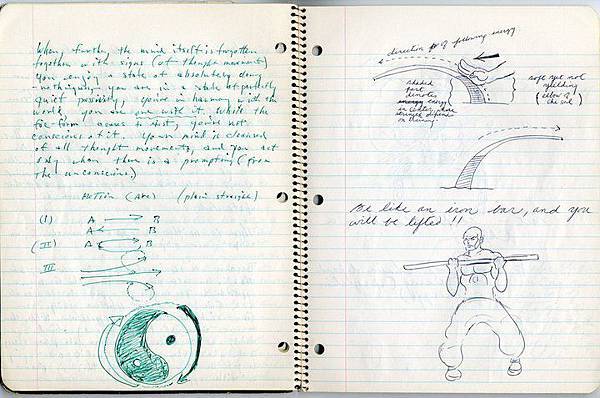 When, further, the mind itself is forgotten
together with signs (of thought movement)
You enjoy a state of absolutely doing
-nothingness- you are in a state of perfectly
quiet passivity, you're in harmony with the
world, you are one with it. While the
foe-form exists, you're not
conscious of it. Your mind is cleansed
of all thought movements, and you act
only when there is a prompting (from
the unconscious)
ACTION (ARC) (plain straight)
(I) A B
A B
(II) A B
III
direction of following energy
shaded
part
denotes
energy energy
depends
on timing.
soft yet not
yielding
(elbow of
Be like an iron bar, and you
will be lifted!!